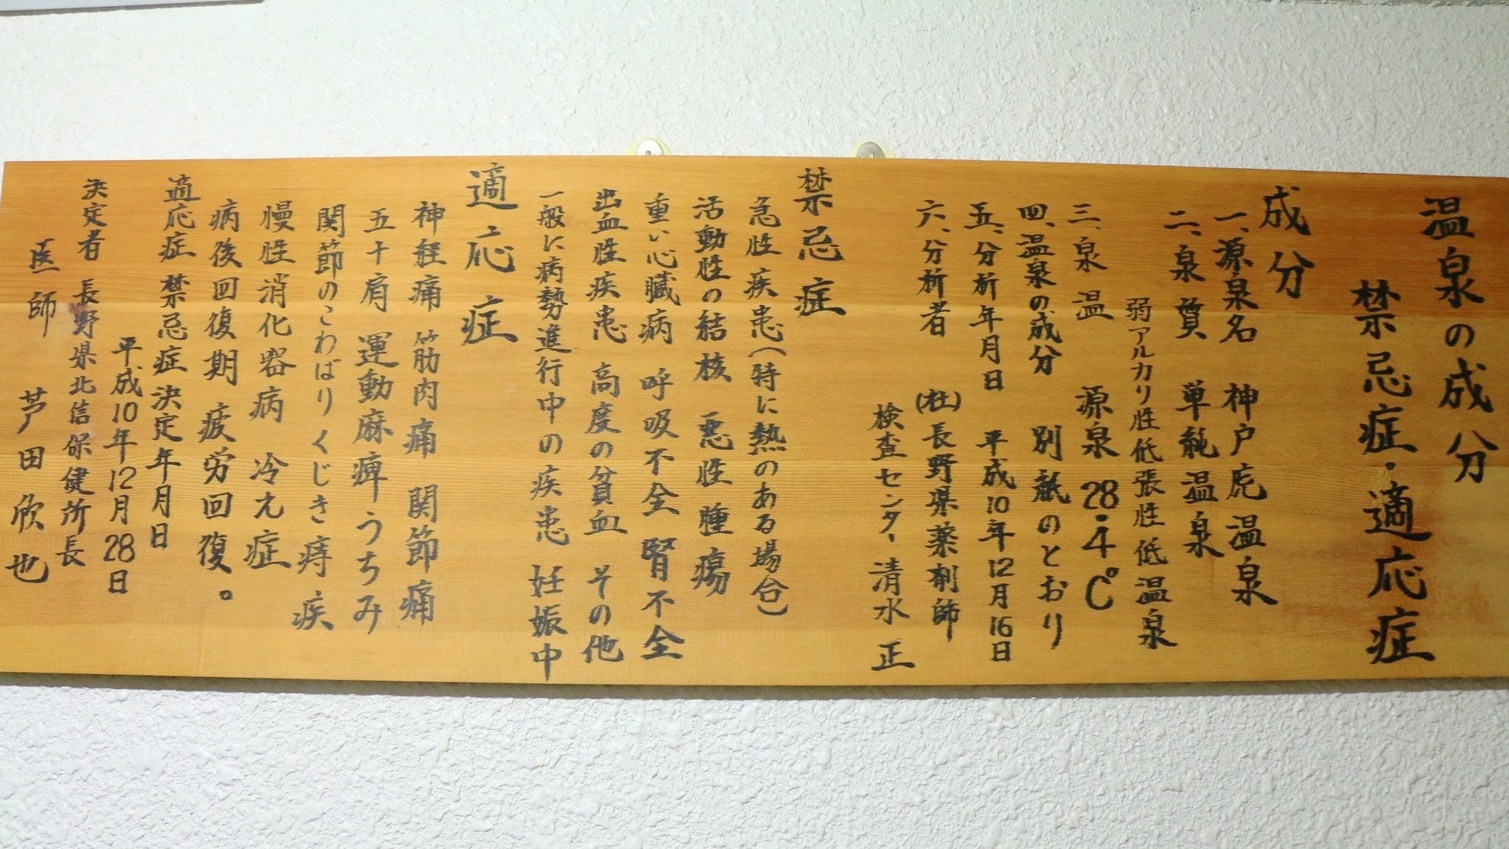 温泉の成分
禁忌症・適応症
成分
一、源泉名 神戸庑温泉
二、泉質 単純温泉
弱アルカリ性低張性低温泉
三、泉温 源泉28.4℃
四、温泉の成分 別紙のとおり
五、分析年月日 平成10年12月16日
六、分析者 (社)長野県薬剤師
検査センター 清水 正
禁忌症
急性疾患(特に熱のある場合)
活動性の結核 悪性腫瘍
重い心臓病 呼吸不全 腎不全
出血性疾患 高度の貧血 その他
一般に病勢進行中の疾患 妊娠中
適応症
神経痛 筋肉痛 関節痛
五十肩 運動麻痺 うちみ
関節のこわばり くじき 痔疾
慢性消化器病 冷え症
病後回復期 疲労回復。
適応症 禁忌症決定年月日
平成10年12月28日
決定者 長野県北信保健所長
医師 芦田欣也